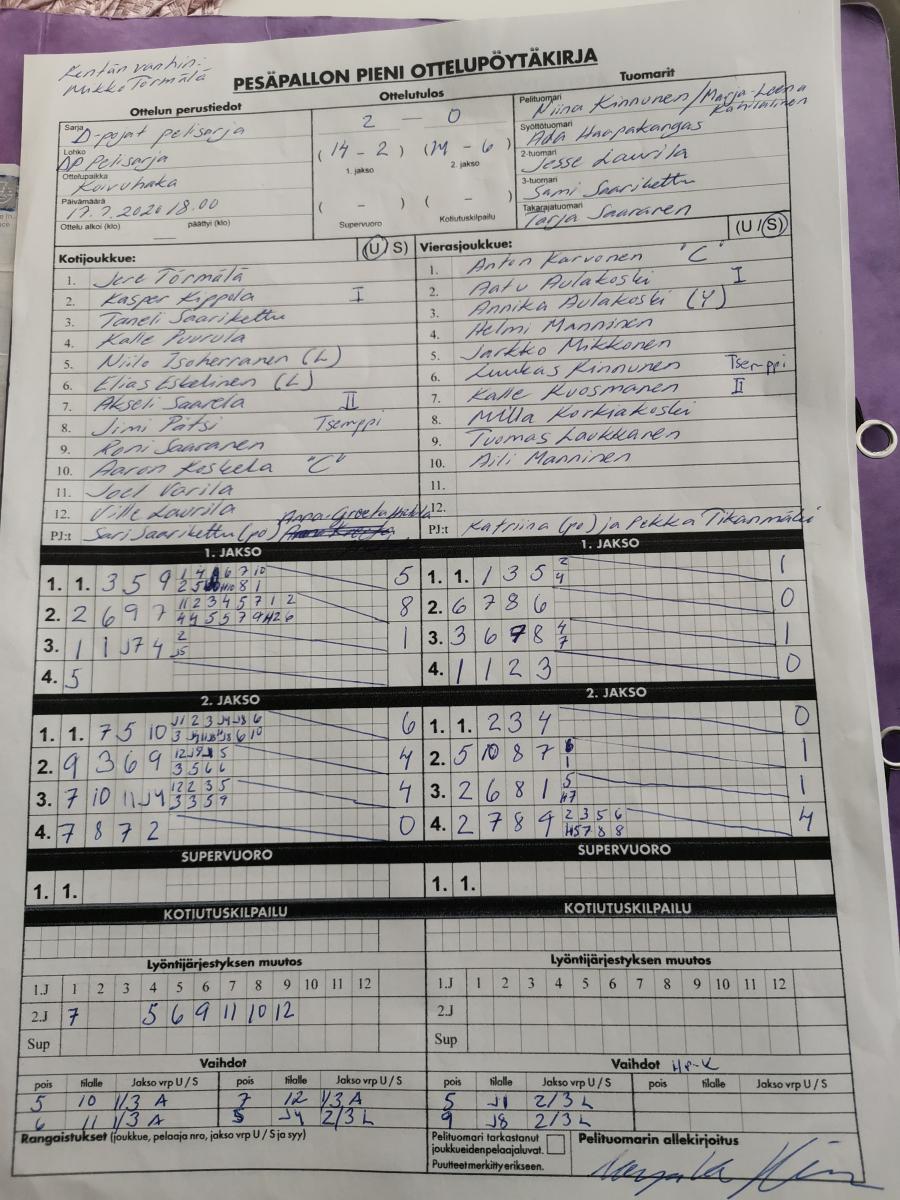 Kentän vanhin:
Mikko Törmälä
PESÄPALLON PIENI OTTELUPÖYTÄKIRJA
Ottelun perustiedot
Sarja D-pojat pelisarja
Lohko DP Pelisarja
Ottelupaikka Koivuhaka
Päivämäärä 17.7.2020 18.00
Ottelu alkoi (klo) päättyi (klo)
Ottelutulos
2 — 0
(14 - 2) (14 - 6)
1. jakso 2. jakso
( - ) ( - )
Supervuoro Kotiutuskilpailu
Tuomarit
Pelituomari Niina Kinnunen/Marja-Leena
Syöttötuomari Ada Haapakangas
2-tuomari Jesse Laurila
3-tuomari Sami Saarikettu
Takarajatuomari Tarja Saaranen
Kotijoukkue: (U/S)
1. Jere Törmälä
2. Kasper Kippola I
3. Taneli Saarikettu
4. Kalle Puurula
5. Niilo Isoherranen (L)
6. Elias Eskelinen (L)
7. Akseli Saarela II
8. Jimi Pätsi Tsemppi
9. Roni Saaranen
10. Aaron Koskela "C"
11. Joel Varila
12. Ville Laurila
PJ:t Sari Saarikettu (po) Anna-Greeta
Vierasjoukkue: (U/S)
1. Anton Karvonen "C"
2. Aatu Aulakoski I
3. Annika Aulakoski (Y)
4. Helmi Manninen
5. Jarkko Mikkonen
6. Luukas Kinnunen Tsemppi
7. Kalle Kuosmanen II
8. Milla Korkiakoski
9. Tuomas Laukkanen
10. Aili Manninen
11.
12.
PJ:t Katriina (po) ja Pekka Tikanmäki
1. JAKSO
1. 1. 3 5 9 5
2. 2 6 9 7 8
3. 1 1 J7 4 2 J5 1
4. 5
1. JAKSO
1. 1. 1 3 5 2 4 1
2. 6 7 8 6 0
3. 3 6 7 8 4 7 1
4. 1 1 2 3 0
2. JAKSO
1. 1. 7 5 10 6
2. 9 3 6 9 4
3. 7 10 11 J4 12 2 3 5 3 3 5 9 4
4. 7 8 7 2 0
2. JAKSO
1. 1. 2 3 4 0
2. 5 10 8 7 1
3. 2 6 8 1 5 H7 1
4. 2 7 8 9 2 3 5 6 H5 7 8 8 4
SUPERVUORO
1. 1.
SUPERVUORO
1. 1.
KOTIUTUSKILPAILU
KOTIUTUSKILPAILU
Lyöntijärjestyksen muutos
1.J 1 2 3 4 5 6 7 8 9 10 11 12
2.J 7 5 6 9 11 10 12
Sup
Lyöntijärjestyksen muutos
1.J 1 2 3 4 5 6 7 8 9 10 11 12
2.J
Sup
Vaihdot
pois tilalle Jakso vrp U / S pois tilalle Jakso vrp U / S
5 10 1/3 A 7 12 1/3 A
6 11 1/3 A J4 2/3 L
Vaihdot
pois tilalle Jakso vrp U / S pois tilalle Jakso vrp U / S
5 J1 2/3 L
9 J8 2/3 L
Rangaistukset (joukkue, pelaaja nro, jakso vrp U / S ja syy)
Pelituomari tarkastanut
joukkueidenpelaajaluvat.
Puutteet merkitty erikseen.
Pelituomarin allekirjoitus